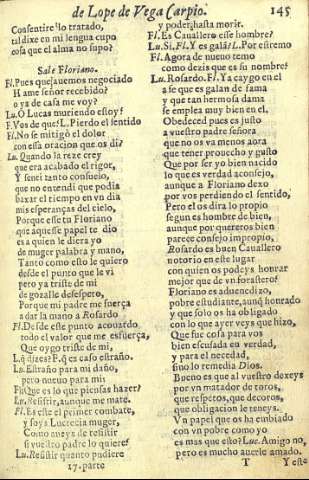 de Lope de Vega Carpio. 145
Consentire lo tratado,
tal dixe en mi lengua cupo
cosa que el alma no supo?
Sale Floriano.
Fl. Pues que auemos negociado
Ha me señor recebido?
o ya de casa me voy?
Lu. O Lucas muriendo estoy!
F. Vos de que? L. Pierdo el sentido
Fl. No se mitigò el dolor
con essa oracion que os di?
Lu. Quando la rezè crey
que era acabado el rigor,
Y senti tanto consuelo,
que no entendi que podia
baxar el tiempo en vn dia
mis esperanças del cielo,
Porque esse tu Floriano
que aquesse papel te dio
es a quien le diera yo
de muger palabra y mano,
Tanto como esto le quiero
desde el punto que le vi
pero ya triste de mi
de gozalle desespero,
Porque mi padre me fuerça
a dar la mano a Rosardo
Fl. Desde este punto acouardo
todo el valor que me esfuerça,
Que oygo triste de mi,
L. q̃ dizes? F. q̃ es caso estraño.
Lu. Estraño para mi daño,
pero nueuo para mi
Fl. Que es lo que piensas hazer?
Lu. Resistir, aunque me mate.
Fl. Es este el primer combate,
y soys Lucrecia muger,
Como aueys de resistir
si vuestro padre lo quiere?
Lu. Resistir quanto pudiere
17. parte
y poder, hasta morir.
Fl. Es Cauallero esse hombre?
Lu. Si. Fl. Y es galã? L. Por estremo
Fl. Agora de nueuo temo
como dezis que es su nombre?
Lu. Rosardo. Fl. Ya caygo en el
a fe que es galan de fama
y que tan hermosa dama
se emplea muy bien en el.
Obedeced pues es justo
a vuestro padre señora
que no os va menos aora
que tener prouecho y gusto
Que por ser yo bien nacido
lo que es verdad aconsejo,
aunque a Floriano dexo
por vos perdiendo el sentido,
Pero el os dira lo propio
segun es hombre de bien,
aunque por quereros bien
parece consejo impropio,
Rosardo es buen Cauallero
notorio en este lugar
con quien os podeys honrar
mejor que de vn forastero!
Floriano es aduenedizo,
pobre estudiante, aunq̃ honrado
y que solo os ha obligado
con lo que ayer veys que hizo,
Que fue cosa para vos
bien escusada en verdad,
y para el necedad,
sino lo remedia Dios.
Bueno es que al vuestro dexeys
por vn matador de toros,
que respetos, que decoros,
que obligacion le teneys.
Vn papel que os ha embiado
con vn pobre como yo
es mas que esto? Luc. Amigo no,
pero es mucho auerle amado.
T Y este